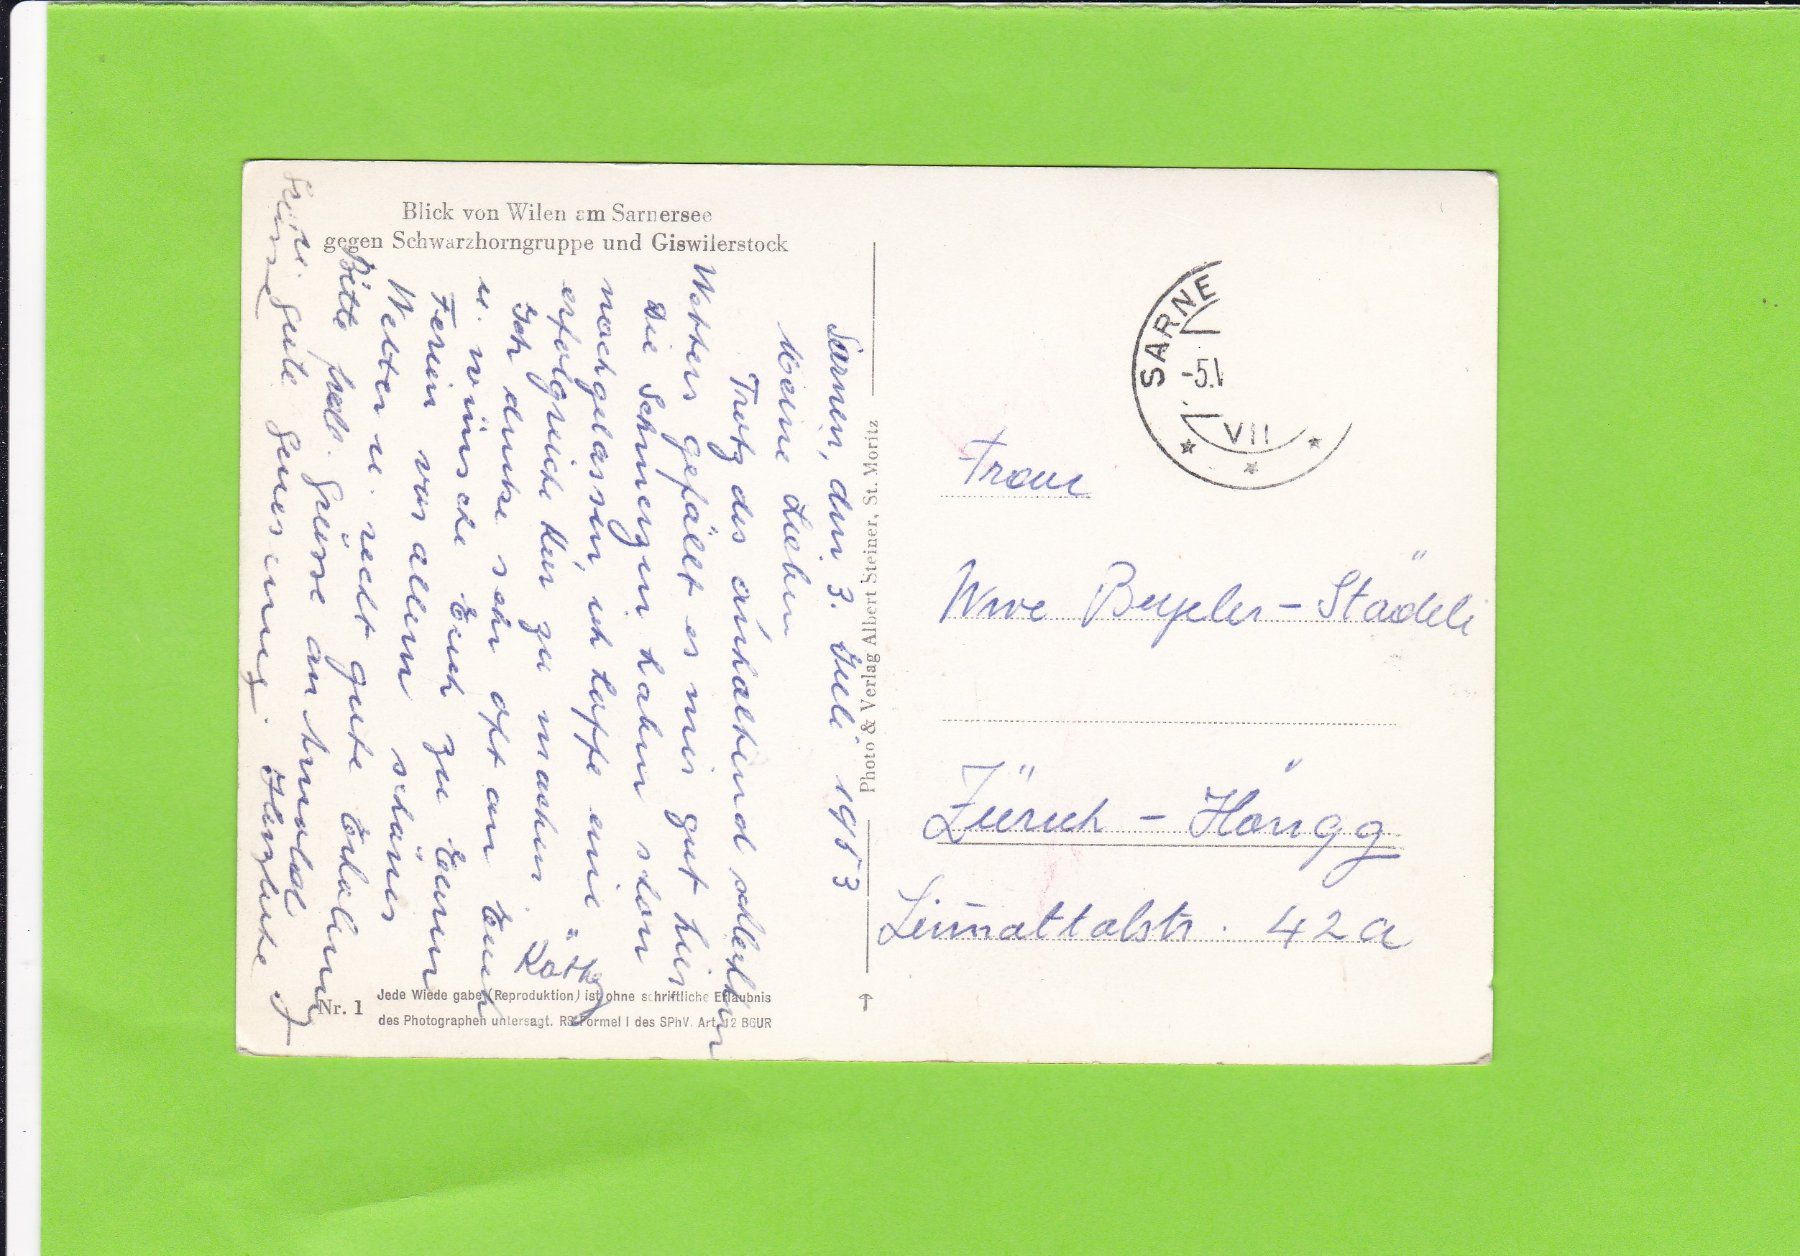 Blick von Wilen am Sarnersee
gegen Schwarzhorngruppe und Giswilerstock
Sarnen, den 3. Juli 1953
Meine Lieben
Trotz des anhaltend schlechten
Wetters gefällt es mir gut hier
Die Schmerzen haben schon
nachgelassen, ich hoffe eine
erfolgreiche Kur zu machen
Ich denke sehr oft an Euch
u. wünsche Euch zu Euren
Ferien vor allem schönes
Wetter u. recht gute Erholung
Bitte Grüsse an Arnold
gute Genesung. Herzliche
Grüsse
Nr. 1
Jede Wiedergabe (Reproduktion) ist ohne schriftliche Erlaubnis
des Photographen untersagt. RS-Formel I des SPhV. Art. 12 BGUR
Photo & Verlag Albert Steiner, St. Moritz
SARNE
-5.
VII
Frau
Wwe Beyeler-Städeli
Zürich - Höngg
Limmattalstr. 42a